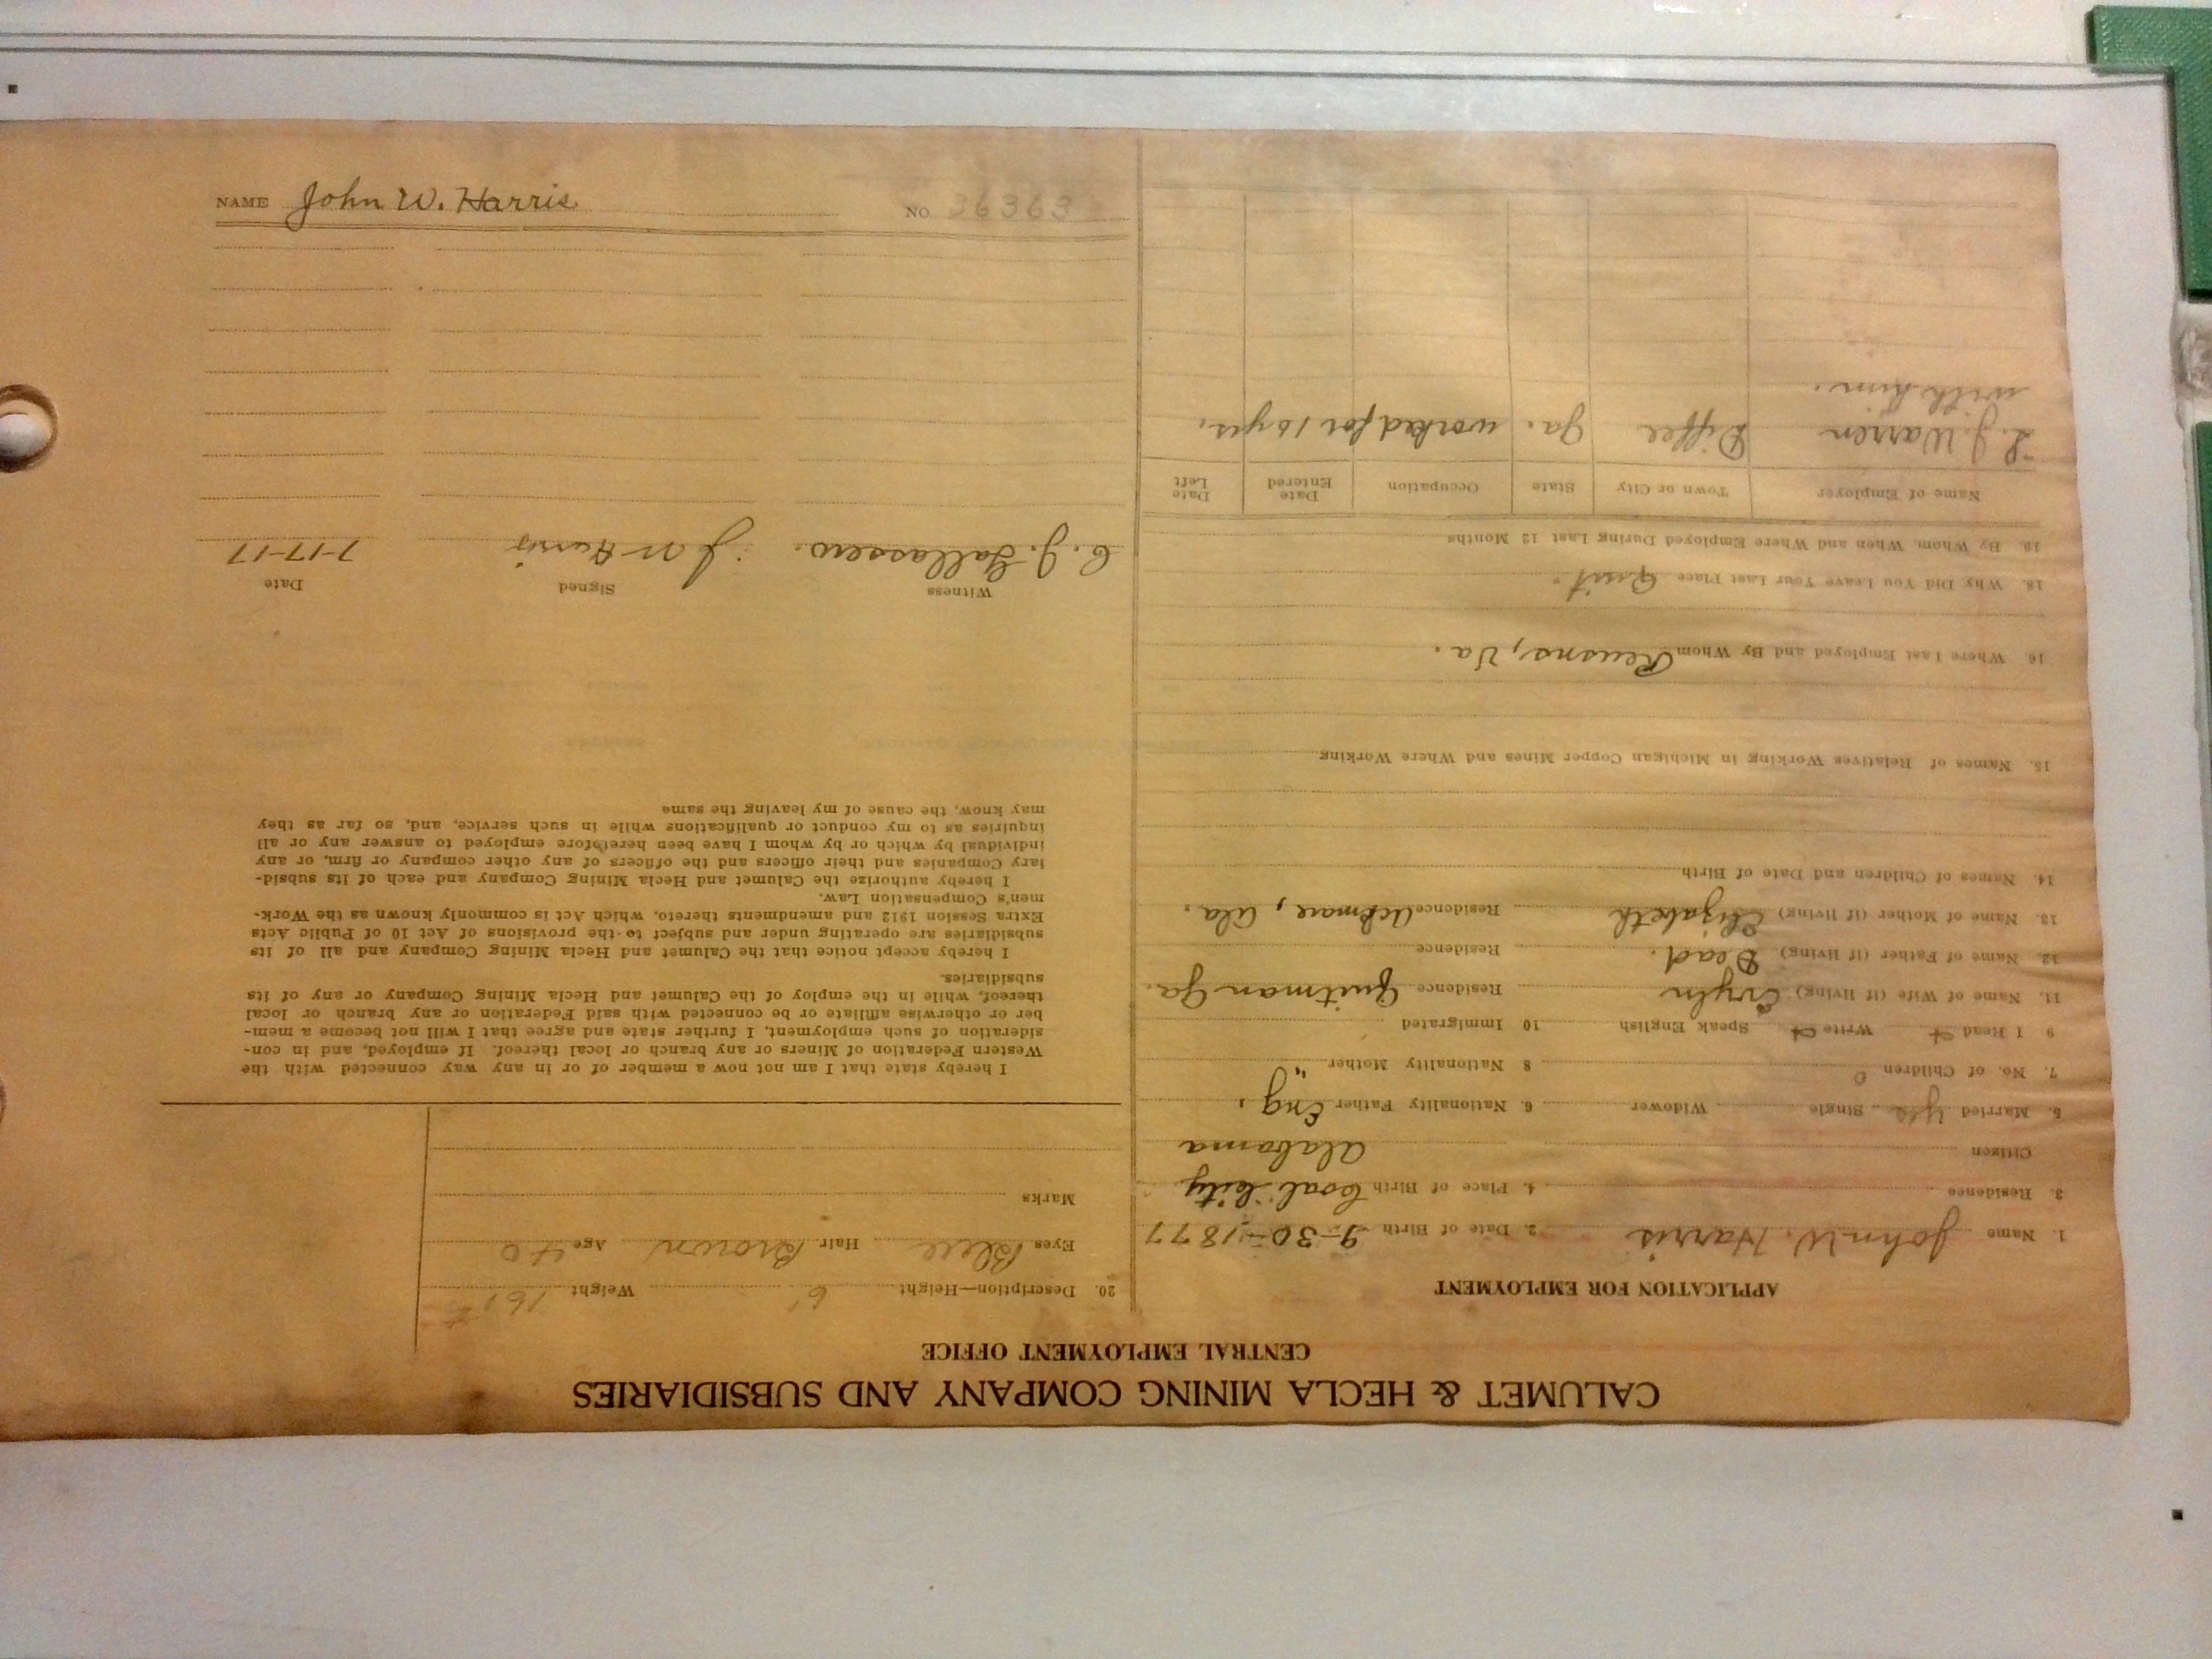 NAME John W. Harris NO 36363
CALUMET & HECLA MINING COMPANY AND SUBSIDIARIES
CENTRAL EMPLOYMENT OFFICE
APPLICATION FOR EMPLOYMENT
1. Name John W. Harris 2. Date of Birth 9-30-1877
3. Residence 4. Place of Birth Coal City
Citizen Alabama
5. Married yes Single Widower 6. Nationality Father Eng.
7. No. of Children 0 8 Nationality Mother "
9 I Read Write Speak English 10 Immigrated
11. Name of Wife (if living) Evyln Residence Quitman Ga.
12. Name of Father (if living) Dead. Residence
13. Name of Mother (if living) Elizabeth Residence Ala.
14. Names of Children and Date of Birth
15. Names of Relatives Working in Michigan Copper Mines and Where Working
16. Where Last Employed and By Whom Reusns, Va.
18. Why Did You Leave Your Last Place Quit.
19. By Whom, When and Where Employed During Last 12 Months
Name of Employer Town or City State Occupation Date Entered Date Left
L. J. Warren Diffee Ga. worked for 10 yrs.
with him.
20. Description—Height 6' Weight
Eyes Blue Hair Brown Age 40
Marks
I hereby state that I am not now a member of or in any way connected with the
Western Federation of Miners or any branch or local thereof. If employed, and in con-
sideration of such employment, I further state and agree that I will not become a mem-
ber or otherwise affiliate or be connected with said Federation or any branch or local
thereof, while in the employ of the Calumet and Hecla Mining Company or any of its
subsidiaries.
I hereby accept notice that the Calumet and Hecla Mining Company and all of its
subsidiaries are operating under and subject to the provisions of Act 10 of Public Acts
Extra Session 1912 and amendments thereto, which Act is commonly known as the Work-
men's Compensation Law.
I hereby authorize the Calumet and Hecla Mining Company and each of its subsid-
iary Companies and their officers and the officers of any other company or firm, or any
individual by which or by whom I have been heretofore employed to answer any or all
inquiries as to my conduct or qualifications while in such service, and, so far as they
may know, the cause of my leaving the same
Witness Signed Date
C. J. J W Harris 7-17-17